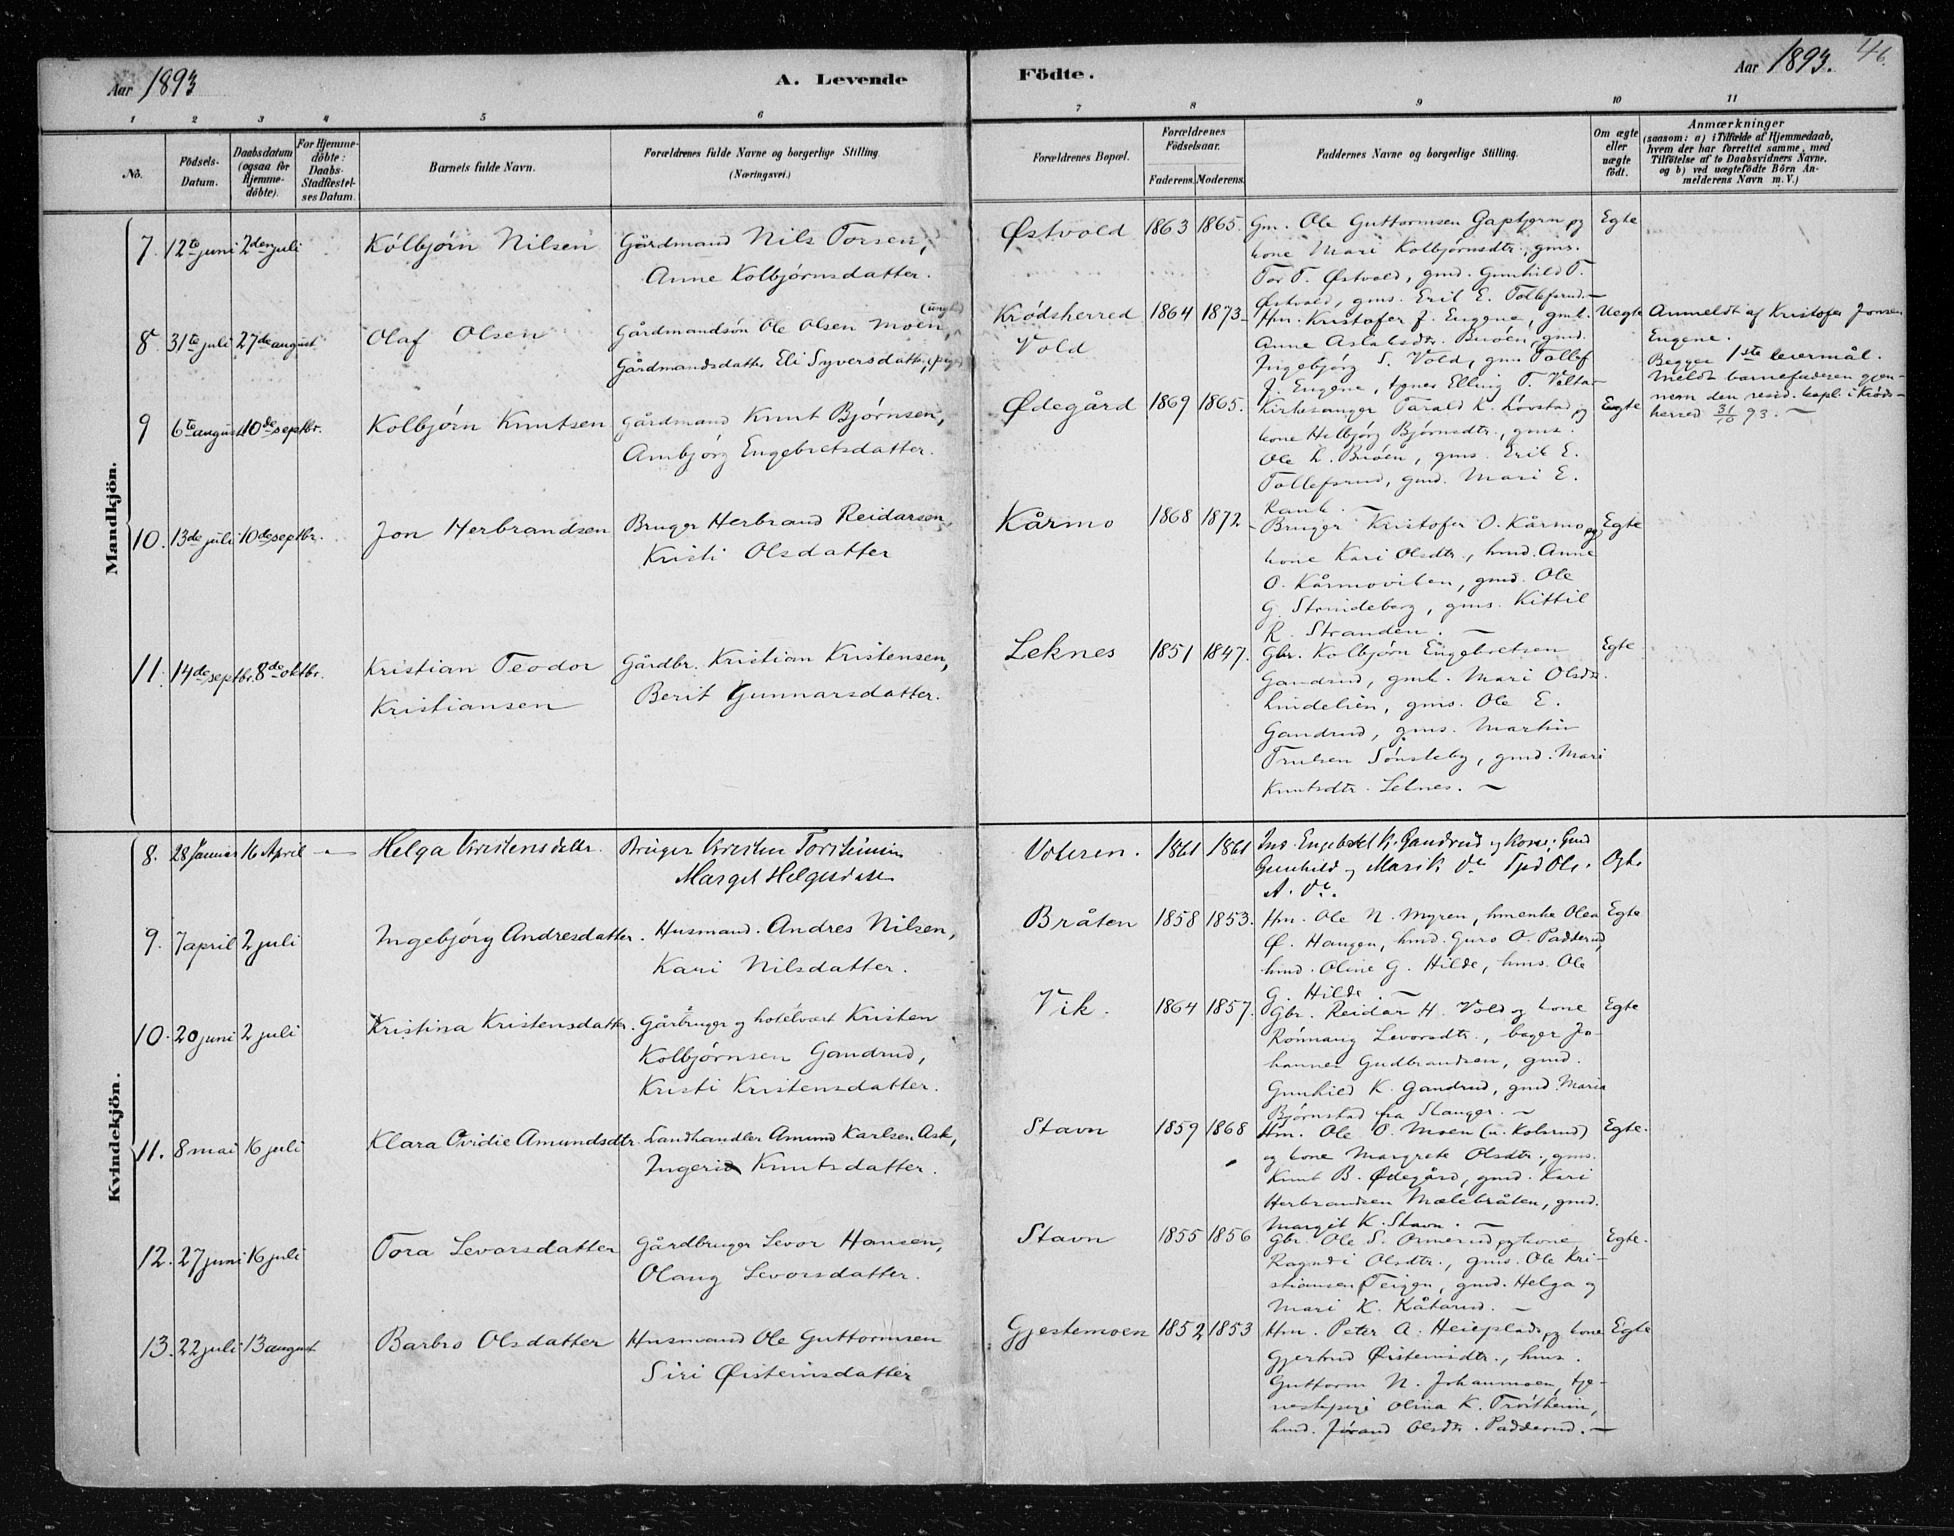 Aar 1893
A. Levende
Födte.
Aar 1893.
46.
1 2 3 4 5 6 7 8 9 10 11
No.
Födsels-Datum.
Daabsdatum (ogsaa for Hjemme-döbte).
For Hjemme-döbte: Daabs-Stadfæstel-ses Datum.
Barnets fulde Navn.
Forældrenes fulde Navne og borgerlige Stilling (Næringsvei.)
Forældrenes Bopæl.
Forældrenes Födselsaar.
Faderens. Moderens.
Faddernes Navne og borgerlige Stilling.
Om ægte eller uægte födt.
Anmærkninger
(saasom: a) i Tilfælde af Hjemmedaab, hvem der har forrettet samme, med Tilföielse af to Daabsvidners Navne, og b) ved uægtefödte Börn An-melderens Navn m. V.)
Mandkjön.
7. 12te juni 2den juli Kolbjørn Nilsen Gårdmand Nils Torsen,
Anne Kolbjørnsdatter.
Østvold 1863 1865. Gm. Ole Guttormsen Gaptjern og Egte
kone Mari Kolbjørnsdtr., gms.
Tor T. Østvold, gmd. Gunhild T.
Østvold, gms. Erik E. Tollefsrud.
8 31te juli 27de august Olaf Olsen Gårdmandsøn Ole Olsen Moen, (ungk)
Gårdmandsdatter Eli Syversdatter, (pige)
Krødsherred 1864 1873 Hm. Kristofer J. Eugene, gmk. Uegte Anmeldt af Kristofer Jonsen
Vold Anne Aslaksdtr. Buøen, gmd. Eugene.
Ingebjørg S. Vold, gms Tollef Begges 1ste leiermål.
J. Eugene, Elling T. Velta Meldt barnefaderen gjen-
nem den resid. kapl. i Krøds-
herred 93. —
9 6te august 10de septbr. Kolbjørn Knutsen Gårdmand Knut Bjørnsen,
Ambjørg Engebretsdatter.
Ødegård 1869 1865. Kirkesanger Tarald K. Løvstad og Egte
kone Helbjørg Bjørnsdtr., gms.
Ole L. Buøen, gms. Erik E.
Tollefsrud, gmd. Mari E.
10. 13de juli 10de septbr. Jon Herbrandsen Bruger Herbrand Reidarsen,
Kristi Olsdatter
Kårmo 1868 1872 Bruger Kristofer O. Kårmo og Egte
kone Kari Olsdtr., hmd. Anne
O. Kårmoviken, gmd. Ole
G. Strindeberg, gms. Kittil
R. Stranden. —
11. 14de septbr. 8de oktbr. Kristian Teodor Gårdbr. Kristian Kristensen,
Kristiansen Berit Gunnarsdatter.
Leknes 1851 1847. Gbr. Kolbjørn Engebretsen Egte
Gandrud, gmk. Mari Olsdtr.
Lindelien, gms. Ole E.
Gandrud, gms. Martin
Trulsen Sønsteby, gmd. Mari
Knutsdtr. Leknes. —
Kvindekjön.
8. 28 Januar 16 April — Helga Kristensdatter. Bruger Kristen Torsteinsen
Margit Helgesdatter
1861 1861 Engebret K. Gandrud og Kone; Egte
Gunhild og Mari K. do Ole.
A. do.
9. 7 april 2 juli Ingebjørg Andresdatter. Husmand. Andres Nilsen,
Kari Nilsdatter.
Bråten 1858 1853. Hm. Ole N. Myren, hmenke Olea Egte
Ø. Haugen, hmd. Guro O. Padderud,
hmd. Oline G. Hilde, hms. Ole
G. Hilde. —
10. 20 juni 2 juli Kristina Kristensdatter. Gårbruger og hotelvært Kristen
Kolbjørnsen Gandrud,
Kristi Kristensdatter.
Vik. 1864 1857. Gbr. Reidar H. Vold og kone Egte
Rønnaug Levorsdtr., bager Jo-
hannes Gudbrandsen, gmd.
Gunhild K. Gandrud, gmd. Maria
Bjørnstad fra Stange. —
11. 8 mai 16 juli Klara Ovidie Amundsdtr. Landhandler Amund Karlsen Ask,
Ingerid Knutsdatter.
Stavn 1859 1868 Hm. Ole O. Moen (u. Kolsrud) Egte.
og kone Margrete Olsdtr., gms.
Knut B. Ødegård, gmd. Kari
Herbrandsen Mælebråten, gmd.
Margit K. Stavn. —
12. 27 juni 16 juli Tora Levorsdatter Gårdbruger Levor Hansen,
Olaug Levorsdatter.
Stavn 1855 1856 Gbr. Ole S. Ormerud og kone Egte.
Ragndi Olsdtr., gms. Ole Kri-
stiansen Teigen, gmd. Helga og
Mari K. Kåtarud. —
13. 22 juli 13 august Barbro Olsdatter Husmand Ole Guttormsen
Siri Øisteinsdatter
Gjestemoen 1852 1853 Hm. Peter A. Heieplads og kone Egte
Gjertrud Øisteinsdtr., hms.
Guttorm N. Johanmoen, tje-
nestepige Olina K. Trøstheim,
hmd. Jørand Olsdtr. Padderud. —